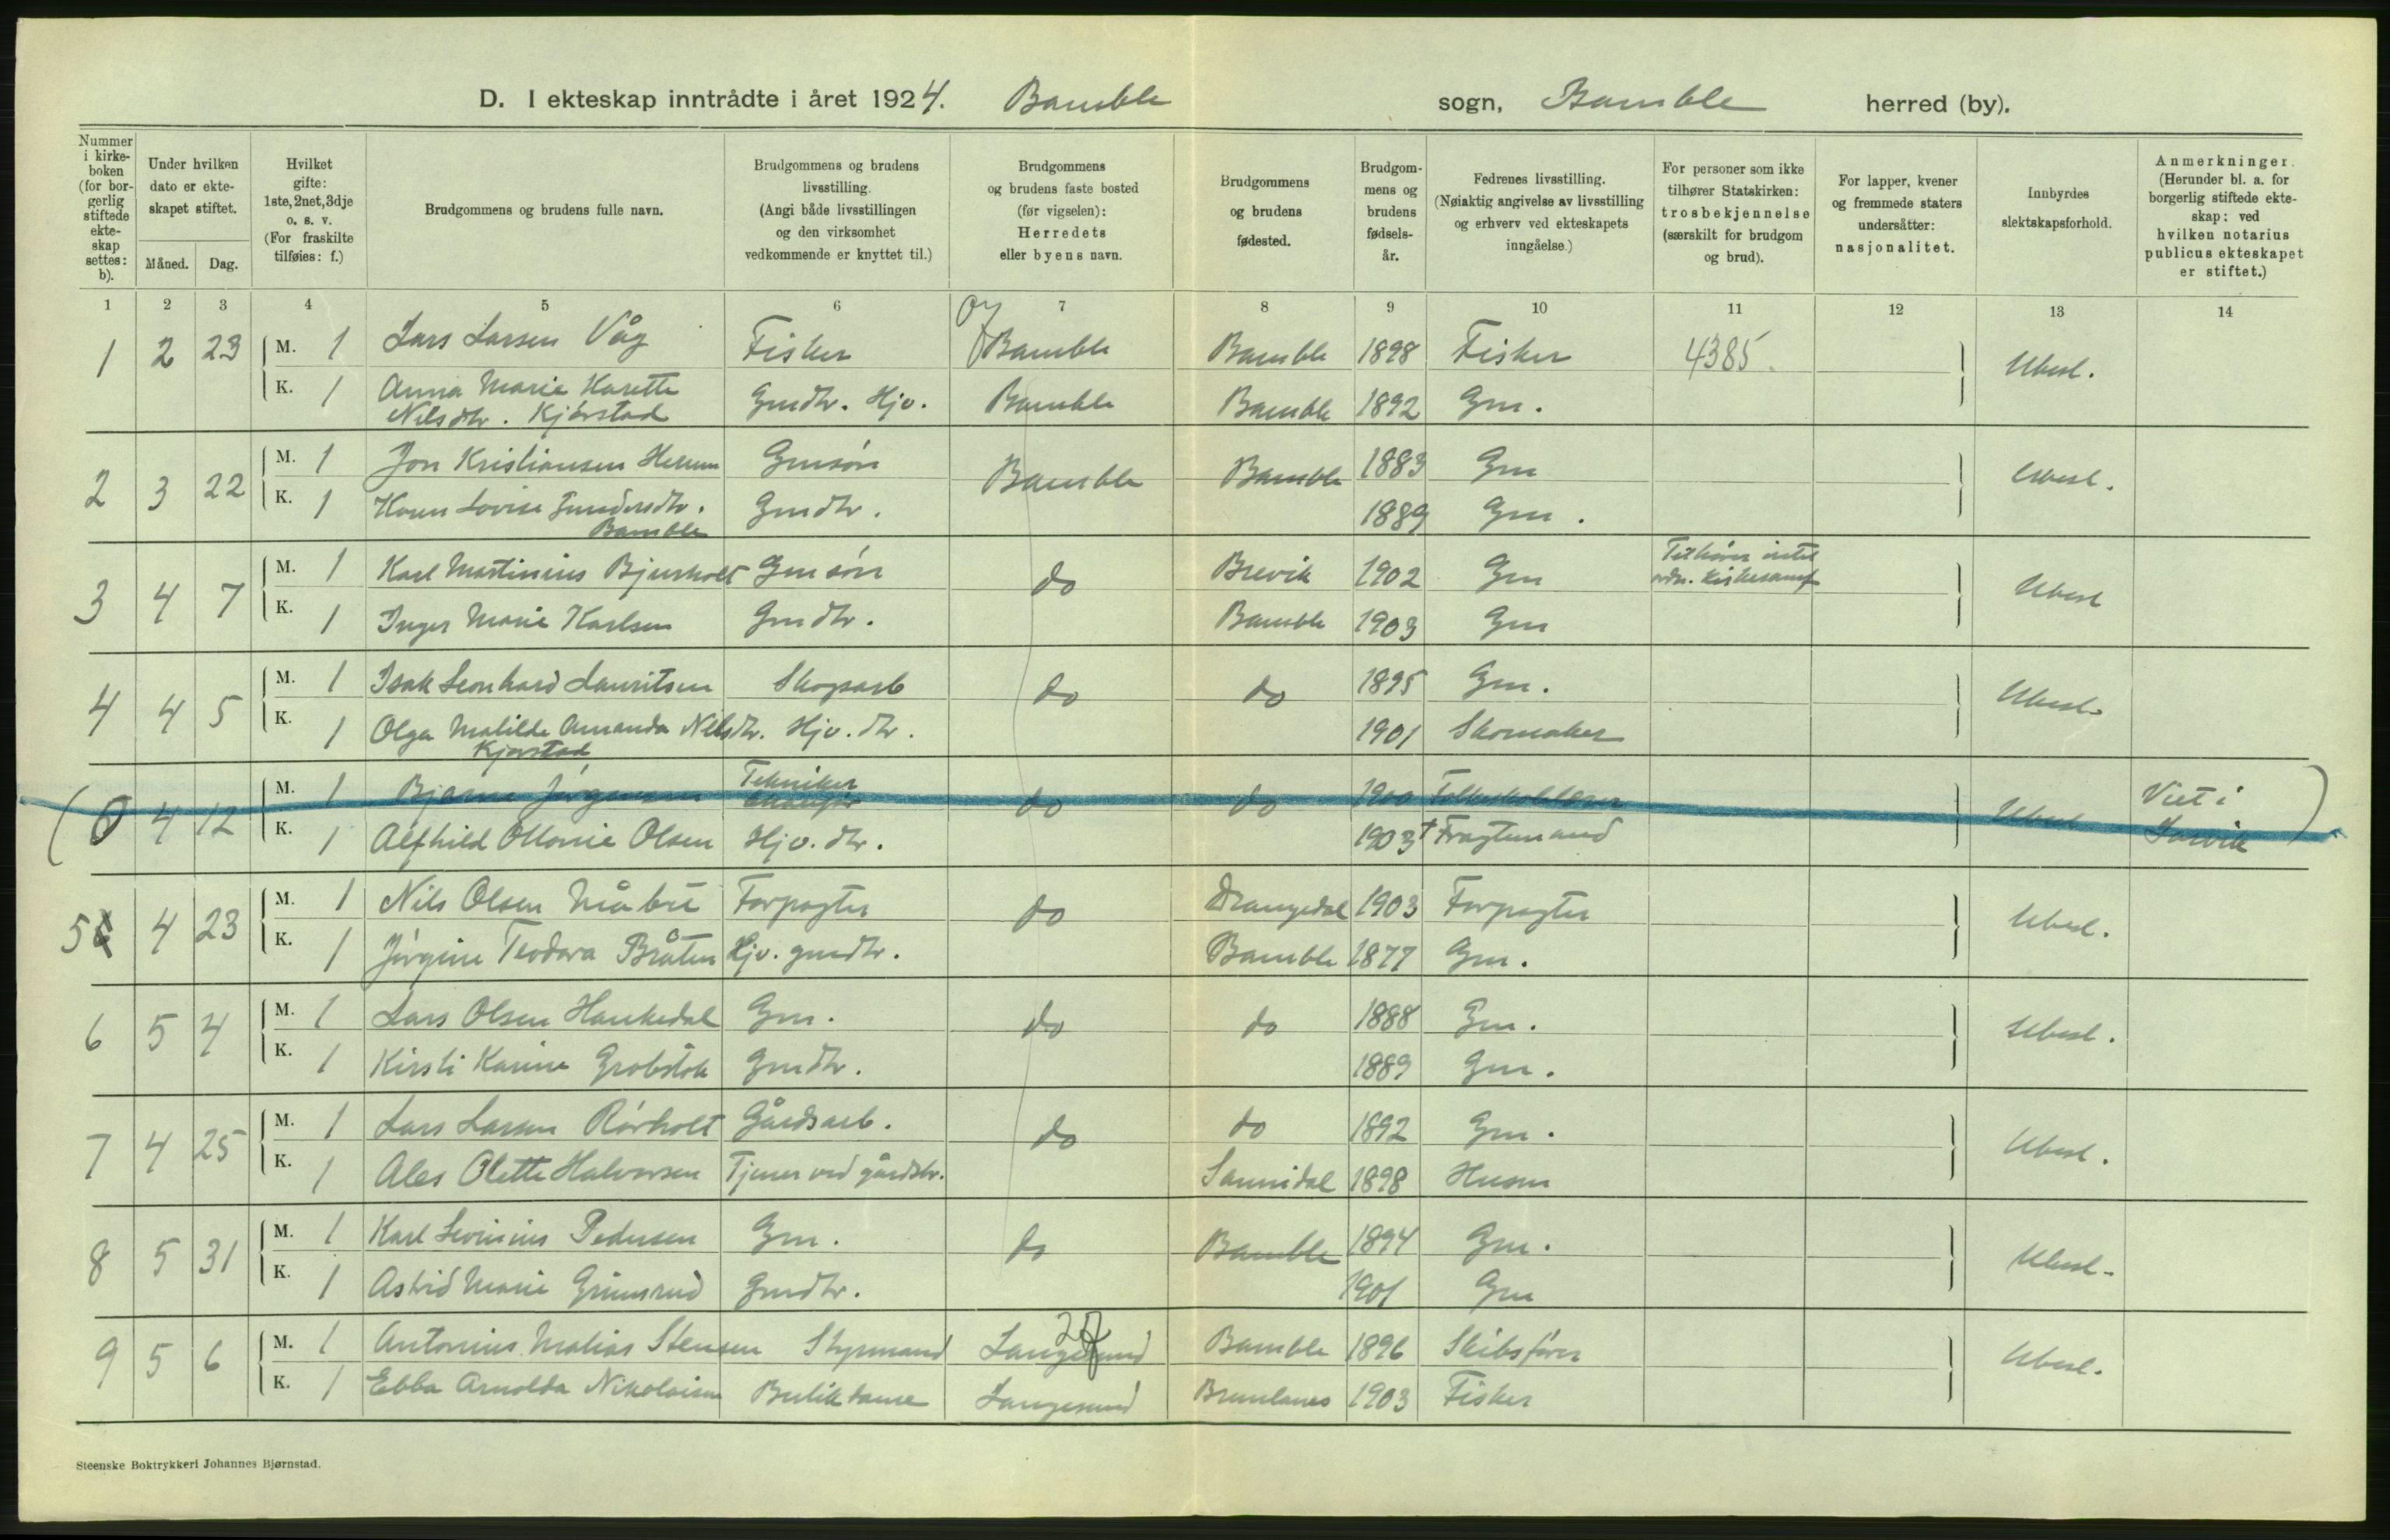 D. I ekteskap inntrådte i året 1924. Bamble sogn, Bamble herred (by).
Nummer i kirke-boken (for bor-gerlig stiftede ekte-skap settes: b).
Under hvilken dato er ekte-skapet stiftet.
Måned. Dag.
Hvilket gifte: 1ste, 2net, 3dje o. s. v. (For fraskilte tilføies: f.)
Brudgommens og brudens fulle navn.
Brudgommens og brudens livsstilling. (Angi både livsstillingen og den virksomhet vedkommende er knyttet til.)
Brudgommens og brudens faste bosted (før vigselen): Herredets eller byens navn.
Brudgommens og brudens fødested.
Brudgom-mens og brudens fødsels-år.
Fedrenes livsstilling. (Nøiaktig angivelse av livsstilling og erhverv ved ekteskapets inngåelse.)
For personer som ikke tilhører Statskirken: trosbekjennelse (særskilt for brudgom og brud).
For lapper, kvener og fremmede staters undersåtter: nasjonalitet.
Innbyrdes slektskapsforhold.
Anmerkninger. (Herunder bl. a. for borgerlig stiftede ekte-skap: ved hvilken notarius publicus ekteskapet er stiftet.)
1 2 3 4 5 6 7 8 9 10 11 12 13 14
1 2 23 M. 1 Lars Larsen Våg Fisker Bamble Bamble 1898 Fisker 4385. Ubesl.
K. 1 Anna Marie Karette Nilsdtr. Kjørstad Gmdtr. Hjv. Bamble Bamble 1892 Gm.
2 3 22 M. 1 Jon Kristiansen Gmsøn Bamble Bamble 1883 Gm Ubesl.
K. 1 Karen Lovise Gundersdtr. Bamble Gmdtr. 1889 Gm.
3 4 7 M. 1 Karl Martinius Bjurholt Gmsøn do Brevik 1902 Gm Tilhører intet ordn. kirkesamf Ubesl
K. 1 Inger Marie Karlsen Gmdtr. Bamble 1903 Gm
4 4 5 M. 1 Isak Leonhard Lauritsen Skogsarb do do 1895 Gm. Ubesl.
K. 1 Olga Matilde Amanda Nilsdtr. Kjørstad Hjv. dtr. 1901 Skomaker
(0 4 12 M. 1 Bjarne Jørgensen Tekniker do do 1900 Folkeskolelærer Ubesl Viet i Larvik)
K. 1 Alfhild Ottonie Olsen Hjv. dtr. 1903 † Fragtemand
5 4 23 M. 1 Nils Olsen Nåbu Forpagter do Drangedal 1903 Forpagter Ubesl.
K. 1 Jørgine Teodora Bråten Hjv. gmdtr. Bamble 1877 Gm.
6 5 4 M. 1 Lars Olsen Haukedal Gm. do do 1888 Gm. Ubesl.
K. 1 Kirsti Karine Grobstok Gmdtr. 1889 Gm.
7 4 25 M. 1 Lars Larsen Rørholt Gårdsarb. do do 1892 Gm. Ubesl.
K. 1 Ales Olette Halvorsen Tjener ved gårdsbr. Sannidal 1898 Husm
8 5 31 M. 1 Karl Levinius Pedersen Gm. do Bamble 1894 Gm. Ubesl.
K. 1 Astrid Marie Grimsrud Gmdtr. 1901 Gm
9 5 6 M. 1 Antonius Matias Stensen Styrmand Langesund Bamble 1896 Skibsfører Ubesl.
K. 1 Ebba Arnolda Nikolaisen Butikdame Langesund Brunlanes 1903 Fisker
Steenske Boktrykkeri Johannes Bjørnstad.